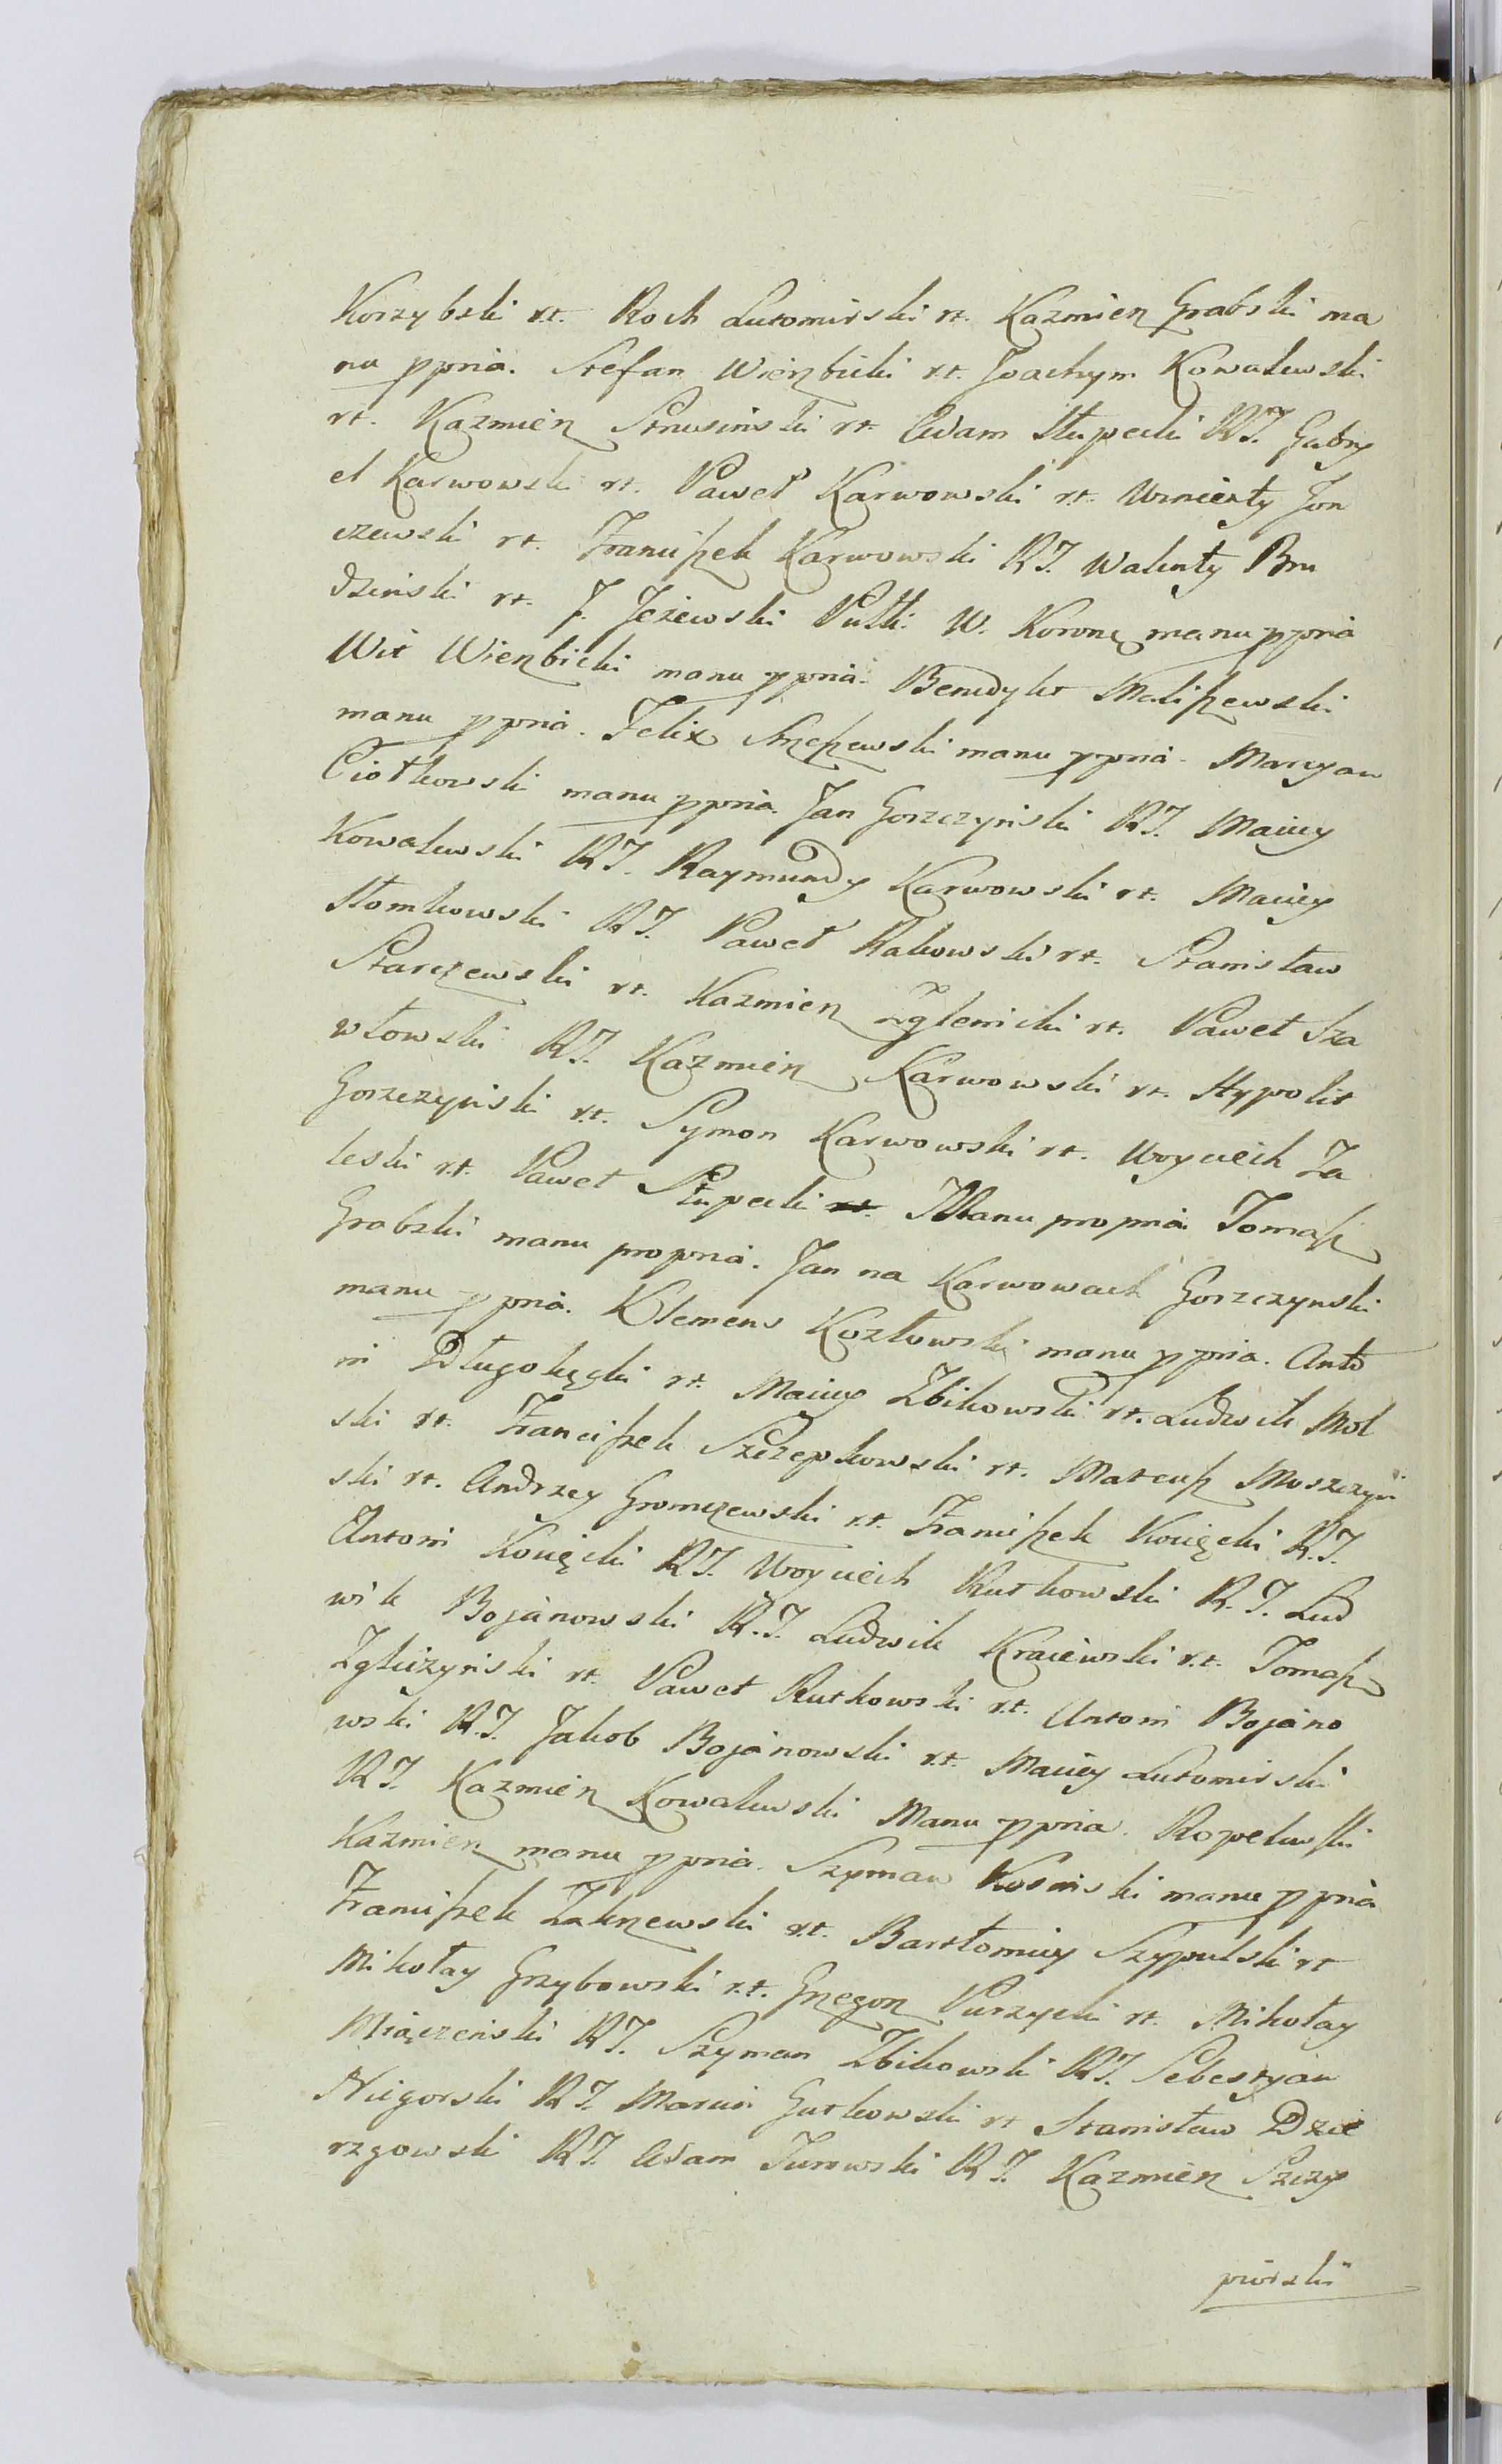 Korzybski rt. Roch Lutomirski rt. Kazmierz Grabski ma
nu ppria. Stefan Wierzbicki rt. Joachym Kowalewski
rt. Kazmierz Strusiński rt. Adam Słupecki RT. Gabry
el Karwowski rt. Paweł Karwowski rt. Wincenty Jon
czewski rt. Franciszek Karwowski RT. Walenty Bru
dzinski rt. J. Jeżewski Pułk: W. Koronę manu ppria
Wit Wierzbicki manu ppria. Benedykt Maliszewski
manu ppria. Felix Strzeszewski manu ppria. Marcyan
Ciołkowski manu ppria. Jan Gorzczyński RT. Maciey
Kowalewski RT. Raymundy Karwowski rt. Maciey
Słomkowski RT. Paweł Rakowski rt. Stanisław
Starczewski rt. Kazmierz Zglenicki rt. Paweł Sza
włowski RT. Kazmierz Karwowski rt. Hypolit
Gorzczyński rt. Symon Karwowski rt. Woyciech Za
leski rt. Paweł Słupecki rt. Manu propria Tomasz
Grabski manu propria. Jan na Karwowach Gorzczynski
manu ppria. Klemens Kozłowski manu ppria. Anto
ni Długołęcki rt. Maciey Zbikowski rt. Ludwik Mol
ski rt. Franciszek Szczepkowski rt. Mateusz Moszczyń
ski rt. Andrzey Gromczewski rt. Franciszek Kocięcki R.T.
Antoni Kocięcki RT. Woyciech Rutkowski R.T. Lud
wik Bojanowski R.T. Ludwik Kraiewski rt. Tomasz
Zgliczyński rt. Paweł Rutkowski rt. Antoni Bojano
wski R.T. Jakob Bojanowski rt. Maciey Lutomirski
RT. Kazmierz Kowalewski Manu ppria. Ropelewski
Kazmierz manu ppria. Szyman Kosinski manu ppria
Franciszek Zakrzewski rt. Bartłomiey Szypulski rt
Mikołay Grzybowski rt. Grzegorz Purzycki rt. Mikołay
Miączeński RT. Szyman Zbikowski RT. Sebestyan
Niegorski RT. Marcin Gutkowski rt Stanisław Dzie
rzgowski RT. Adam Turowski RT. Kazmierz Szczy
piorski